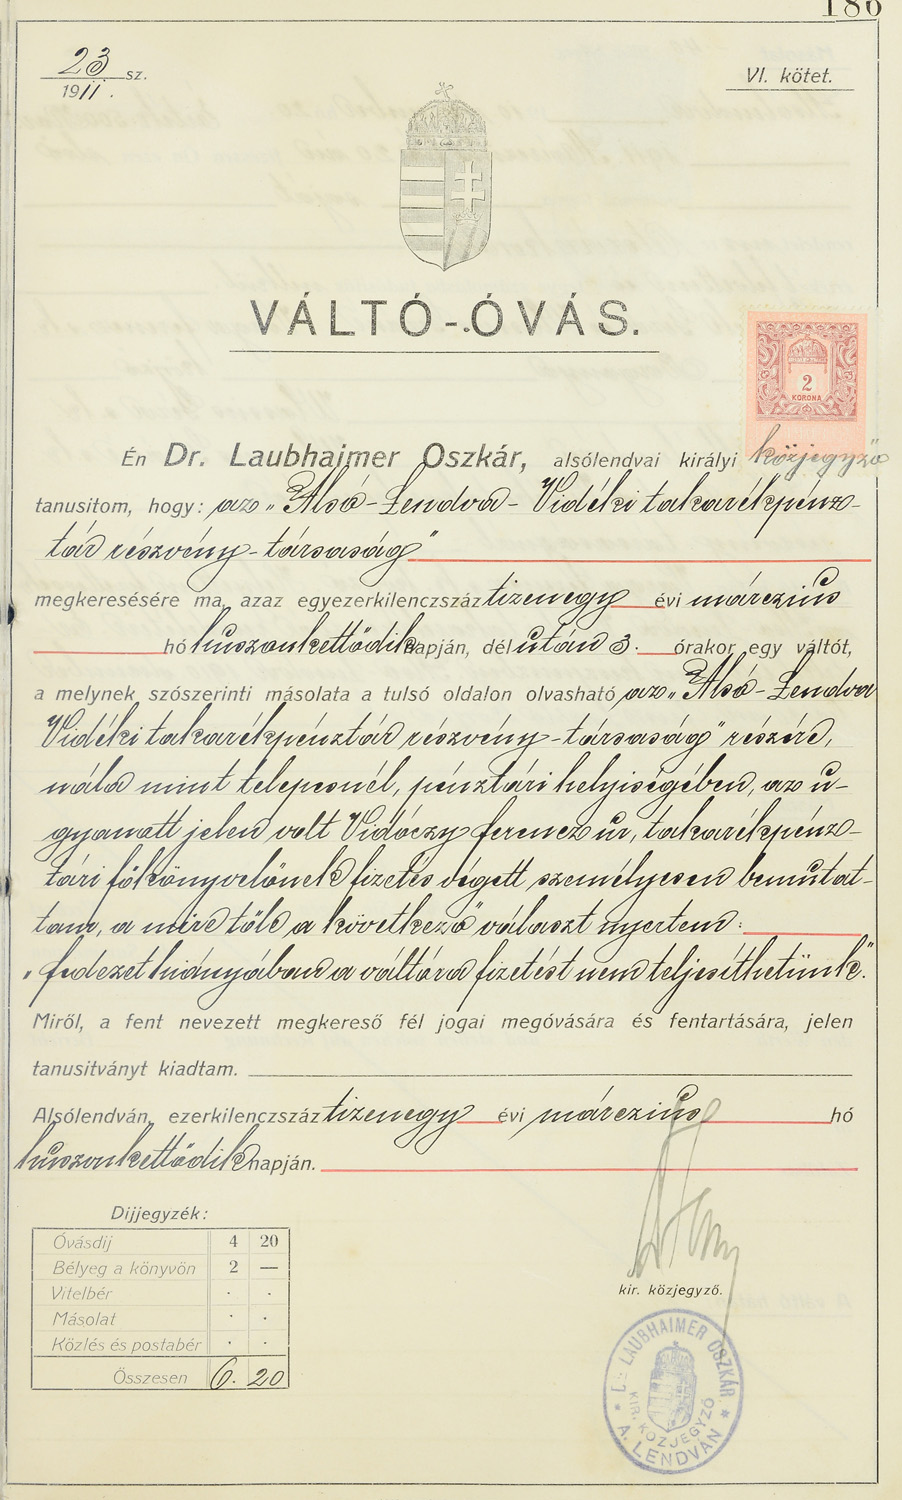 186
23 sz.
1911.
VI. kötet.
VÁLTÓ-ÓVÁS.
2
KORONA
Én Dr. Laubhaimer Oszkár, alsólendvai királyi közjegyző
tanusitom, hogy: az „Alsó-Lendva-Vidéki takarékpénz-
tár részvény-társaság"
megkeresésére ma, azaz egyezerkilenczszáz tizenegy évi márczius
hó huszonkettődik napján, délután 3. órakor egy váltót,
a melynek szószerinti másolata a tulsó oldalon olvasható az „Alsó-Lendva
Vidéki takarékpénztár részvény-társaság" részére,
nála mint telepesnél, pénztári helyiségében, az u-
gyanott jelen volt Vidóczy Ferencz ur, takarékpénz-
tári főkönyvelőnek fizetés végett személyesen bemutat-
tam, a mire tőle a következő választ nyertem:
„fedezet hiányában a váltóra fizetést nem teljesíthetünk".
Miről, a fent nevezett megkereső fél jogai megóvására és fentartására, jelen
tanusitványt kiadtam.
Alsólendván, ezerkilenczszáz tizenegy évi márczius hó
huszonkettődik napján.
Dijjegyzék:
Óvásdij 4 20
Bélyeg a könyvön 2 —
Vitelbér . .
Másolat . .
Közlés és postabér . .
Összesen 6. 20
kir. közjegyző.
Dr. LAUBHAIMER OSZKÁR
KIR. KÖZJEGYZŐ
A. LENDVÁN